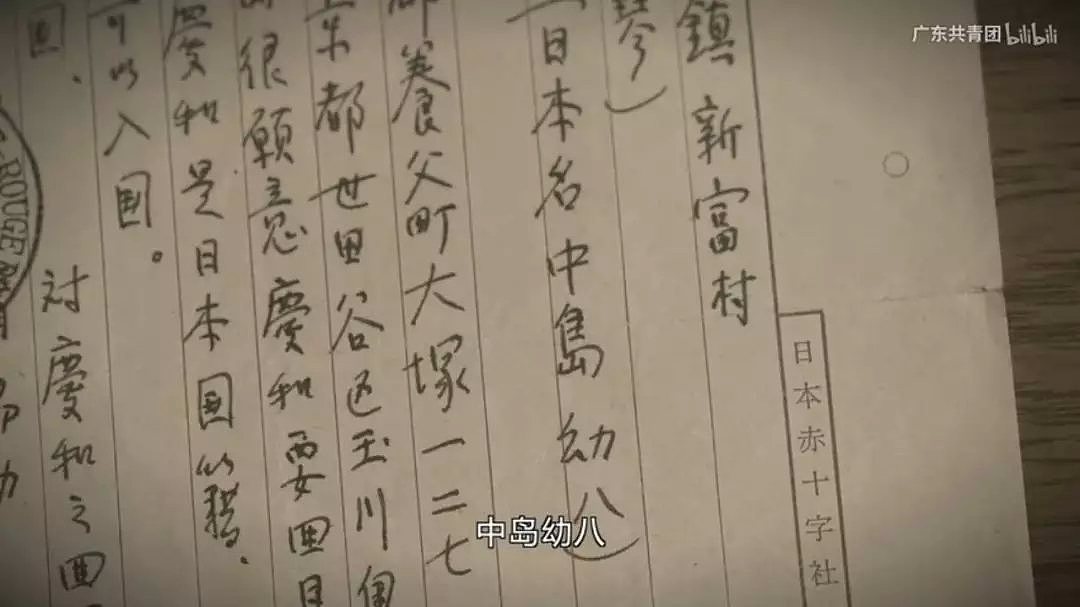 广东共青团 bilibili
日本赤十字社
鎮新富村
琴）
日本名中島幼八）
郡養父町大塚一二七
京都世田谷区玉川用
很願意慶和要囬日
慶和是日本国的籍.
可以入国。
対慶和之囬
回、
ROUGE
中岛幼八